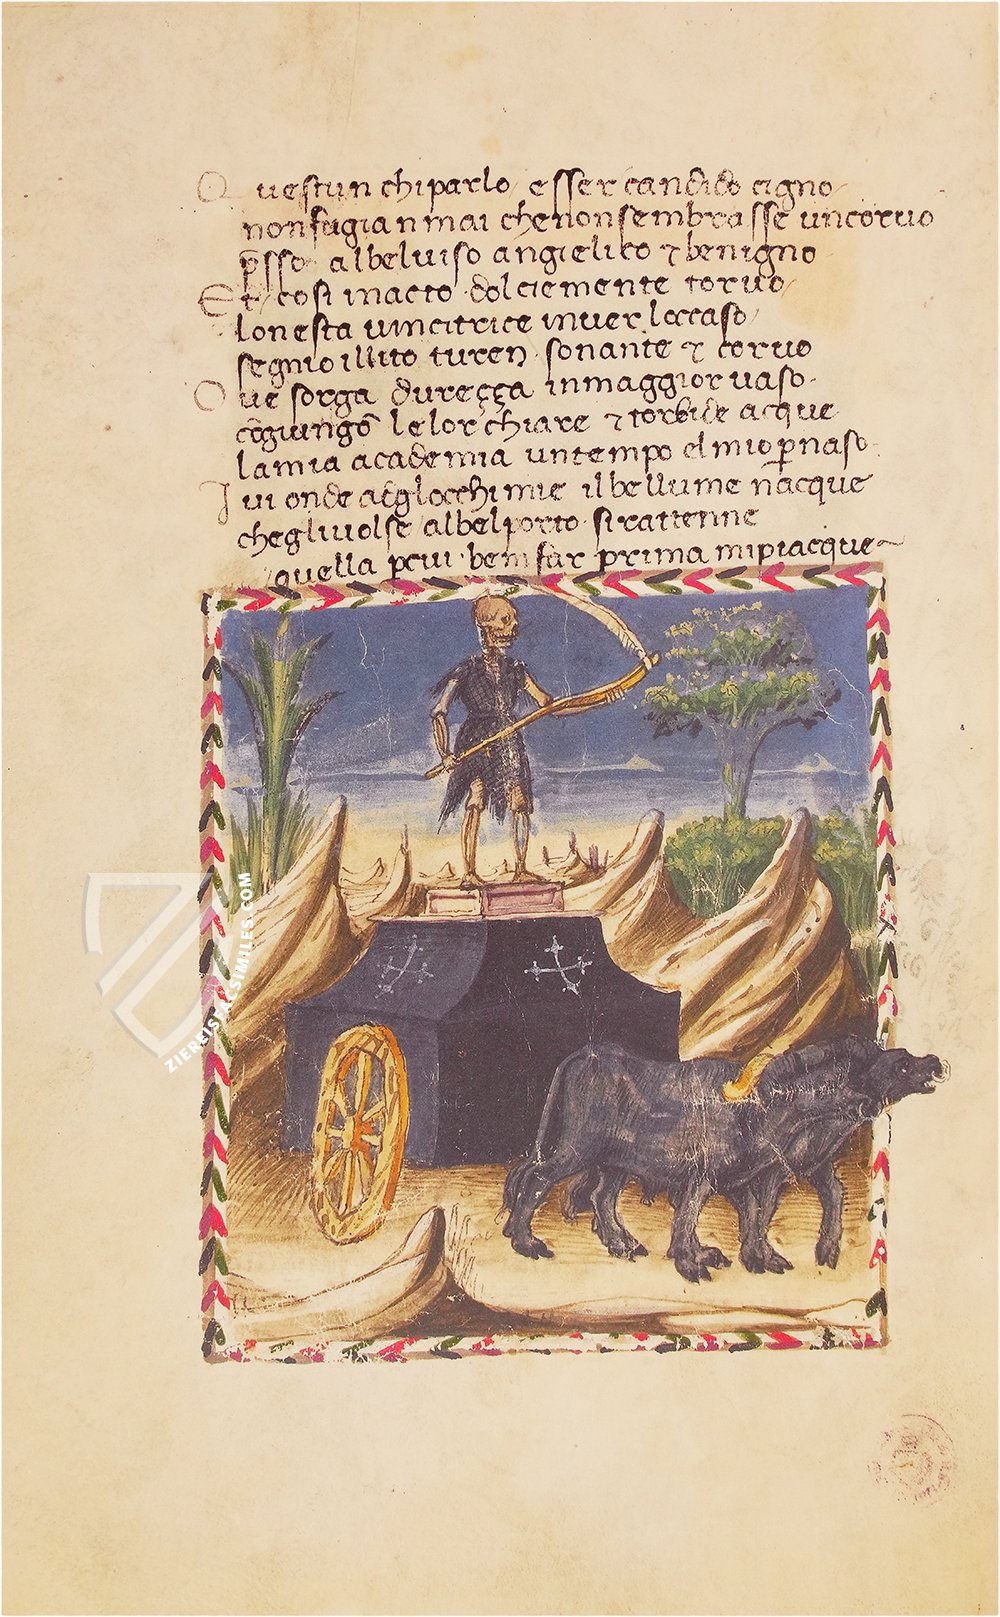 Questun chi parlo esser candido cigno
non fugian mai che non sembrasse un coruo
psso al bel uiso angielico & benigno
Et cosi in acto dolciemente toruo
lonesta uincitrice inuer loccaso
segnio illito turen sonante & coruo
Oue sorga dureçça in maggior uaso
cōgiungō le lor chiare & torbide acque
la mia academia un tempo el mio pnaso
Iui onde aglocchi mie il bel lume nacque
che gli uolse al bel porto si rattenne
quella pcui ben far prima mi piacque
ZIEREISFACSIMILES.COM